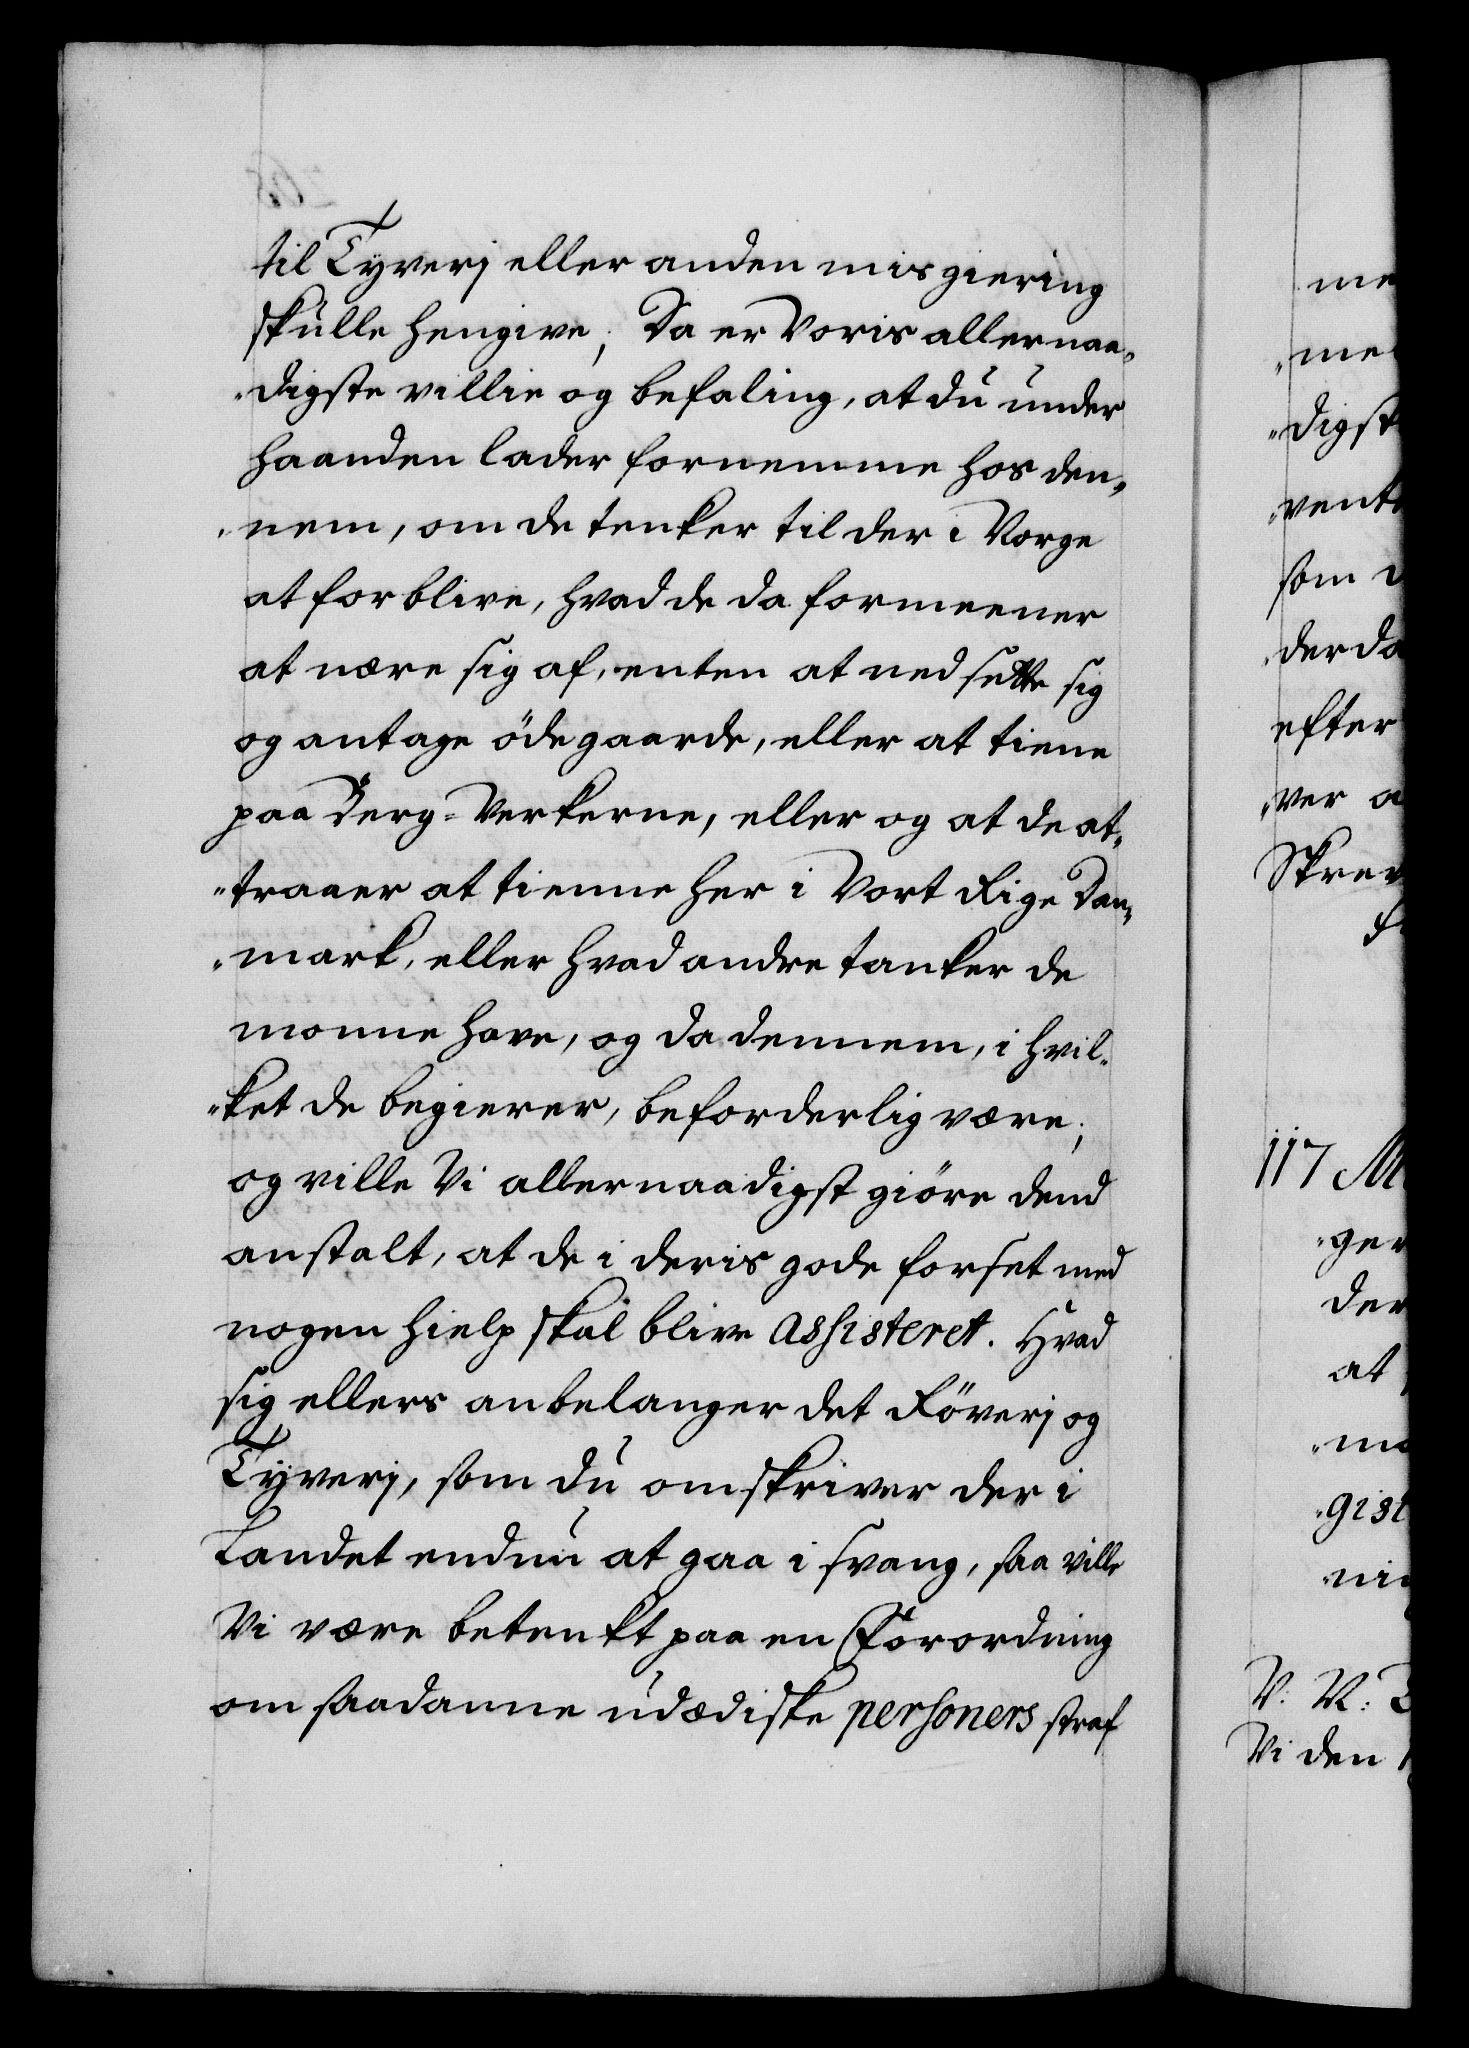 til Tyverj eller anden misgiering
skulle hengive, Da er Voris allernaa-
digste villie og befaling, at du under
haanden lader fornemme hos den-
nem, om de tenker til der i Norge
at forblive, hvad de da formeener
at nære sig af, enten at nedsette sig
og antage ödegaarde, eller at tiene
paa Berg-Verkerne, eller og at de at-
traaer at tienne her i Vort Rige Dan-
mark, eller hvad andre tanker de
monne have, og da dennem, i hvil-
ket de begierer, beforderlig være;
og ville Vi allernaadigst giöre dend
anstalt, at de i deris gode forset med
nogen hielp skal blive assisteret. Hvad
sig ellers anbelanger det Röverj og
Tyverj, som du omskriver der i
Landet endnu at gaa i svang, saa ville
Vi være betenkt paa en Forordning
om saadanne udædiske personers straf
me
mel
digst
vent
som
der da
efter
ver a
Skrev
117 M
ger
der
at
ma
gist
nin
V. V.
Vi den